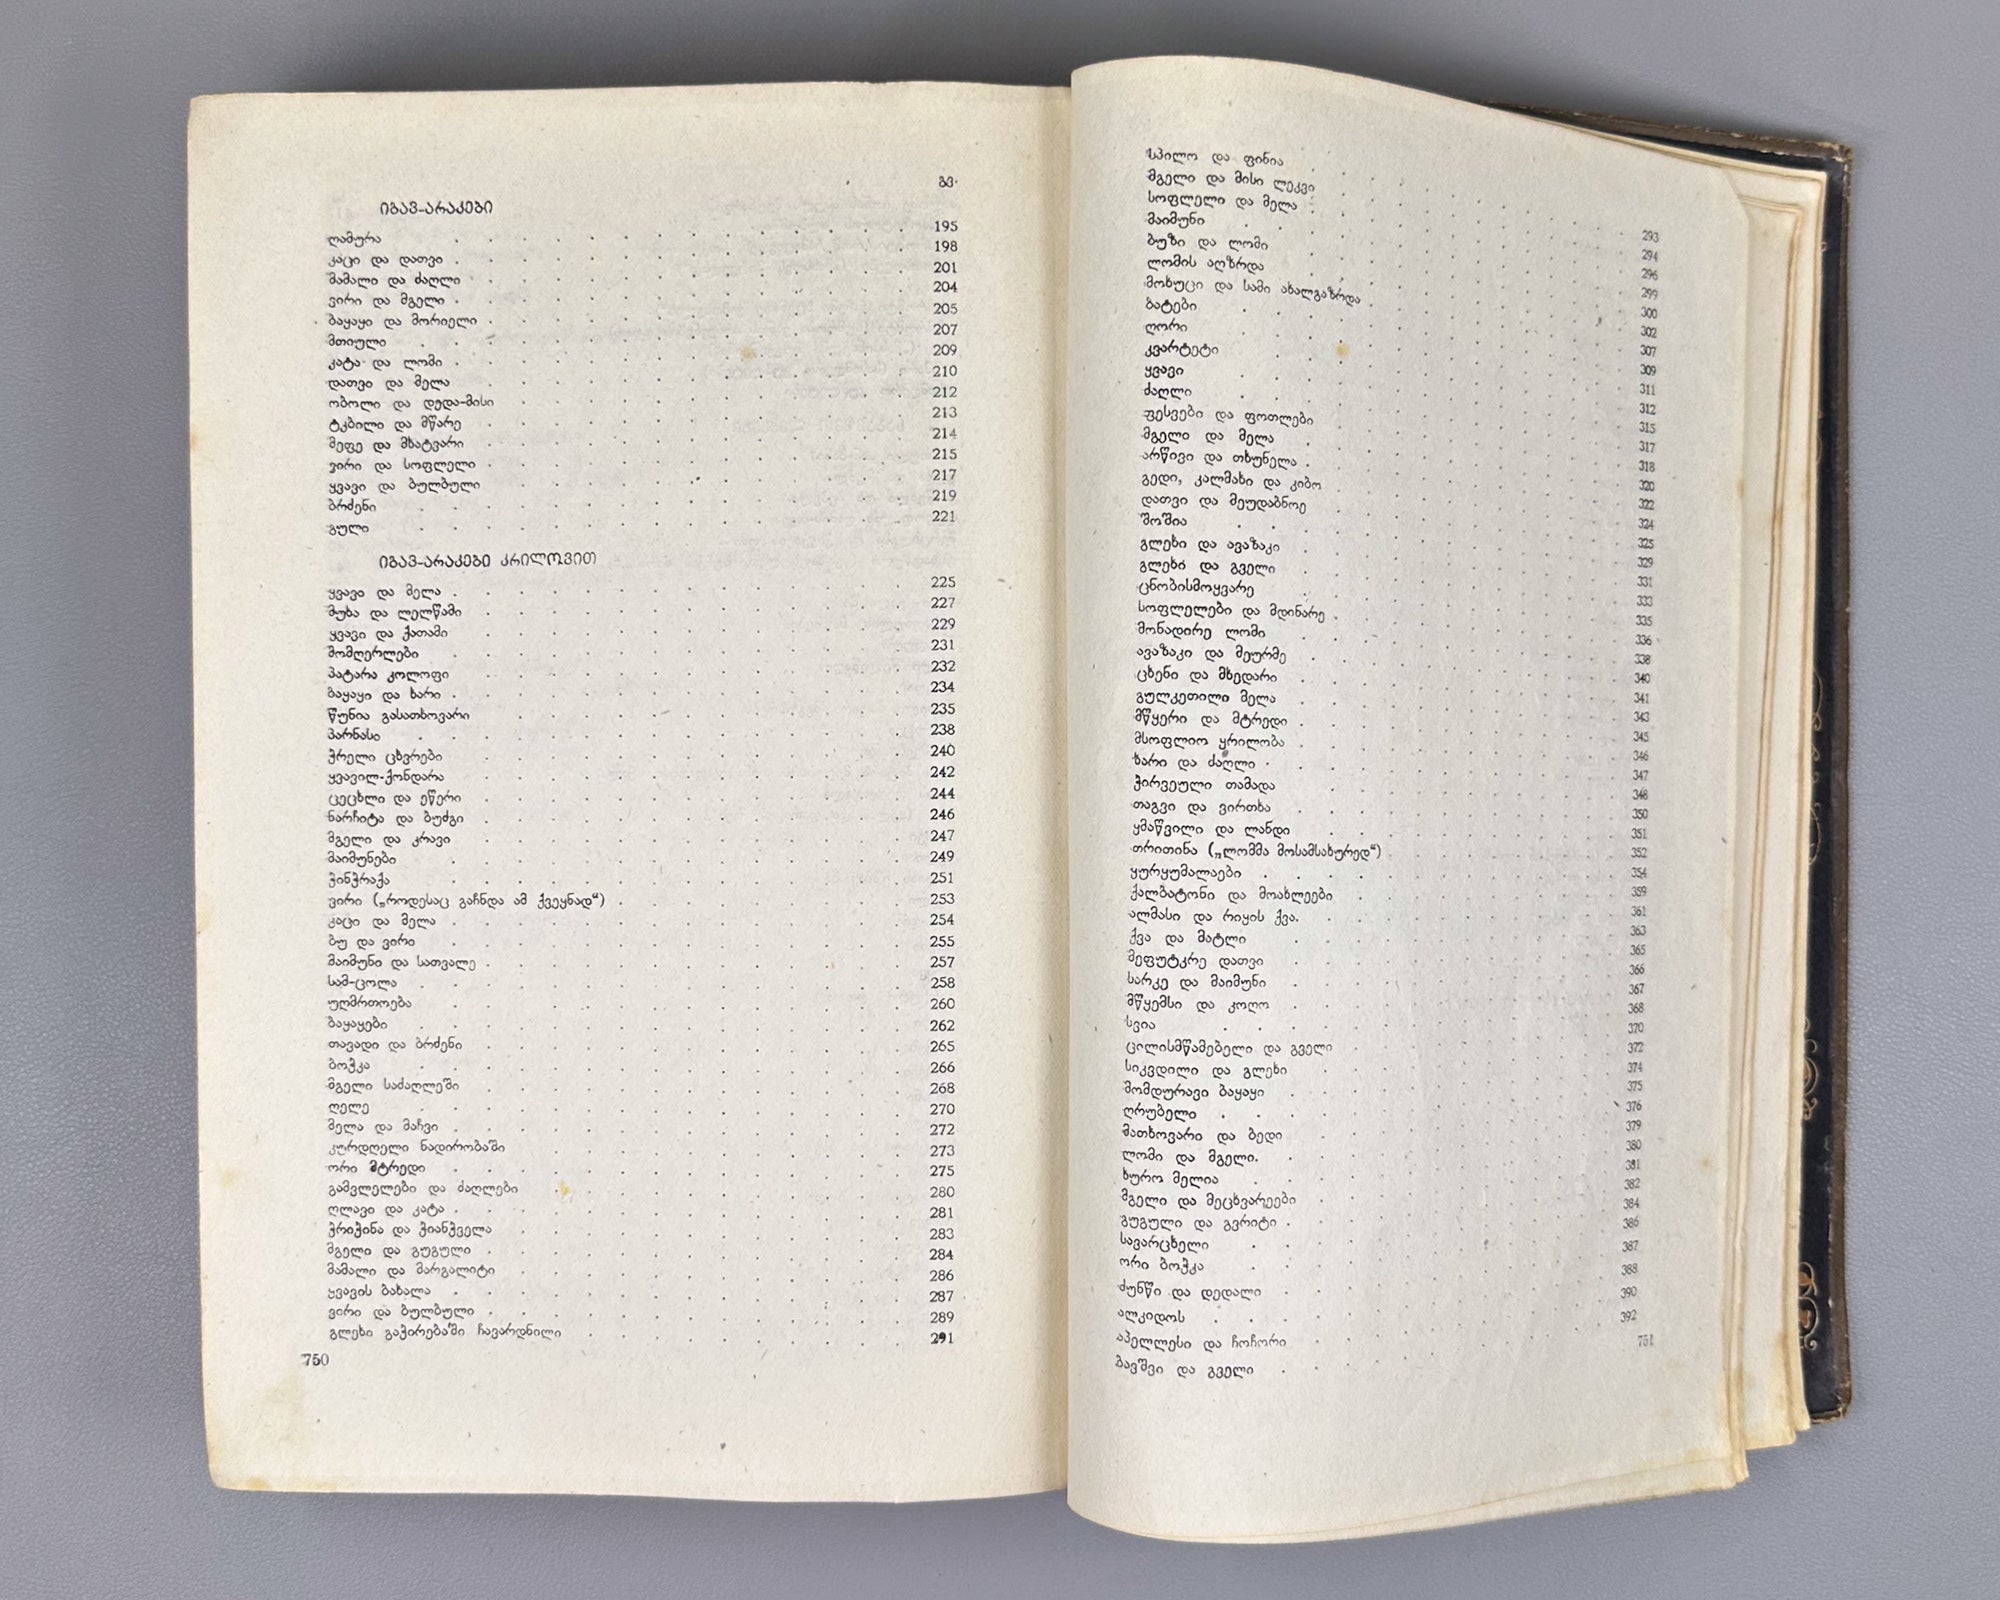 გვ.
ᲘᲒᲐᲕ-ᲐᲠᲐᲙᲔᲑᲘ
ღამურა . . . . . 195
კაცი და დათვი . . . . . 198
მამალი და ძაღლი . . . . . 201
ვირი და მგელი . . . . . 204
ბაყაყი და მორიელი . . . . . 205
მთიული . . . . . 207
კატა და ლომი . . . . . 209
დათვი და მელა . . . . . 210
ობოლი და დედა-მისი . . . . . 212
ტკბილი და მწარე . . . . . 213
მეფე და მხატვარი . . . . . 214
ვირი და სოფლელი . . . . . 215
ყვავი და ბულბული . . . . . 217
ბრძენი . . . . . 219
გული . . . . . 221
ᲘᲒᲐᲕ-ᲐᲠᲐᲙᲔᲑᲘ ᲙᲠᲘᲚᲝᲕᲘᲗ
ყვავი და მელა . . . . . 225
მუხა და ლელწამი . . . . . 227
ყვავი და ქათამი . . . . . 229
მომღერლები . . . . . 231
პატარა კოლოფი . . . . . 232
ბაყაყი და ხარი . . . . . 234
წუნია გასათხოვარი . . . . . 235
პარნასი . . . . . 238
ჭრელი ცხვრები . . . . . 240
ყვავილ-ქონდარა . . . . . 242
ცეცხლი და ეწერი . . . . . 244
ნარჩიტა და ბუძგი . . . . . 246
მგელი და კრავი . . . . . 247
მაიმუნები . . . . . 249
ჭინჭრაქა . . . . . 251
ვირი („როდესაც გაჩნდა ამ ქვეყნად“) . . . . . 253
კაცი და მელა . . . . . 254
ბუ და ვირი . . . . . 255
მაიმუნი და სათვალე . . . . . 257
სამ-ცოლა . . . . . 258
უღმრთოება . . . . . 260
ბაყაყები . . . . . 262
თავადი და ბრძენი . . . . . 265
ბოჭკა . . . . . 266
მგელი საძაღლეში . . . . . 268
ღელე . . . . . 270
მელა და მაჩვი . . . . . 272
კურდღელი ნადირობაში . . . . . 273
ორი მტრედი . . . . . 275
გამვლელები და ძაღლები . . . . . 280
ღლავი და კატა . . . . . 281
ჭრიჭინა და ჭიანჭველა . . . . . 283
მგელი და გუგული . . . . . 284
მამალი და მარგალიტი . . . . . 286
ყვავის ბახალა . . . . . 287
ვირი და ბულბული . . . . . 289
გლეხი გაჭირებაში ჩავარდნილი . . . . . 291
750
სპილო და ფინია . . . . . 293
მგელი და მისი ლეკვი . . . . . 294
სოფლელი და მელა . . . . . 296
მაიმუნი . . . . . 299
ბუზი და ლომი . . . . . 300
ლომის აღზრდა . . . . . 302
მოხუცი და სამი ახალგაზრდა . . . . . 307
ბატები . . . . . 309
ღორი . . . . . 311
კვარტეტი . . . . . 312
ყვავი . . . . . 315
ძაღლი . . . . . 317
ფესვები და ფოთლები . . . . . 318
მგელი და მელა . . . . . 320
არწივი და თხუნელა . . . . . 322
გედი, კალმახი და კიბო . . . . . 324
დათვი და მეუდაბნოე . . . . . 325
შოშია . . . . . 329
გლეხი და ავაზაკი . . . . . 331
გლეხი და გველი . . . . . 333
ცნობისმოყვარე . . . . . 335
სოფლელები და მდინარე . . . . . 336
მონადირე ლომი . . . . . 338
ავაზაკი და მეურმე . . . . . 340
ცხენი და მხედარი . . . . . 341
გულკეთილი მელა . . . . . 343
მწყერი და მტრედი . . . . . 345
მსოფლიო ყრილობა . . . . . 346
ხარი და ძაღლი . . . . . 347
ჭირვეული თამადა . . . . . 348
თაგვი და ვირთხა . . . . . 350
ყმაწვილი და ლანდი . . . . . 351
თრითინა („ლომმა მოსამსახურედ“) . . . . . 352
ყურყუმალაები . . . . . 354
ქალბატონი და მოახლეები . . . . . 359
ალმასი და რიყის ქვა . . . . . 361
ქვა და მატლი . . . . . 363
მეფუტკრე დათვი . . . . . 365
სარკე და მაიმუნი . . . . . 366
მწყემსი და კოღო . . . . . 367
სვია . . . . . 368
ცილისმწამებელი და გველი . . . . . 370
სიკვდილი და გლეხი . . . . . 372
მომდურავი ბაყაყი . . . . . 374
ღრუბელი . . . . . 375
მათხოვარი და ბედი . . . . . 376
ლომი და მგელი . . . . . 379
ხურო მელია . . . . . 380
მგელი და მეცხვარეები . . . . . 381
გუგული და გვრიტი . . . . . 382
სავარცხელი . . . . . 384
ორი ბოჭკა . . . . . 386
ძუნწი და დედალი . . . . . 387
ალკიდოს . . . . . 388
აპელლესი და ჩოჩორი . . . . . 390
ბავშვი და გველი . . . . . 392
751